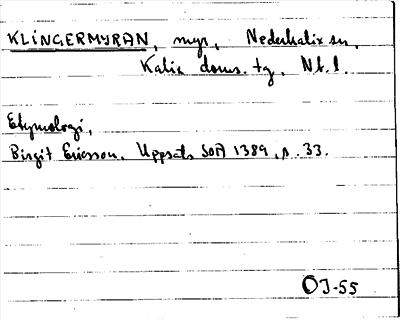 KLINGERMYRAN, myr, Nederkalix sn,
Kalix doms. tg, Nb. l.
Etymologi,
Birgit Ericsson. Uppsats SOÅ 1389, s. 33.
OJ-55